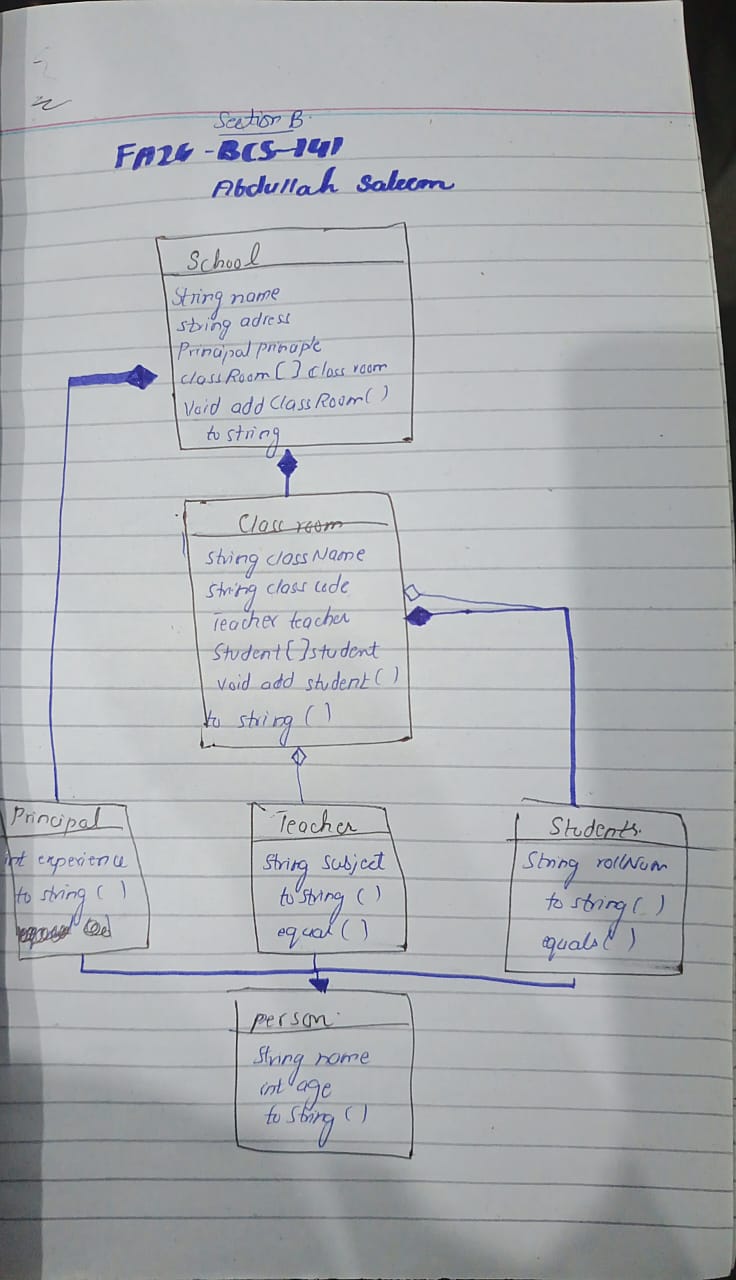 Section B.
FA24-BCS-141
Abdullah Saleem
School
String name
string adress
Principal principle
classRoom [ ] class room
Void add Class Room( )
to string
Class room
String class Name
String class code
Teacher teacher
Student [ ] student
void add student ( )
to string ( )
Principal
int experience
to string ( )
Teacher
String Subject
to String ( )
equal ( )
Students.
String rollNum
to string ( )
equals ( )
person.
String name
int age
to String ( )